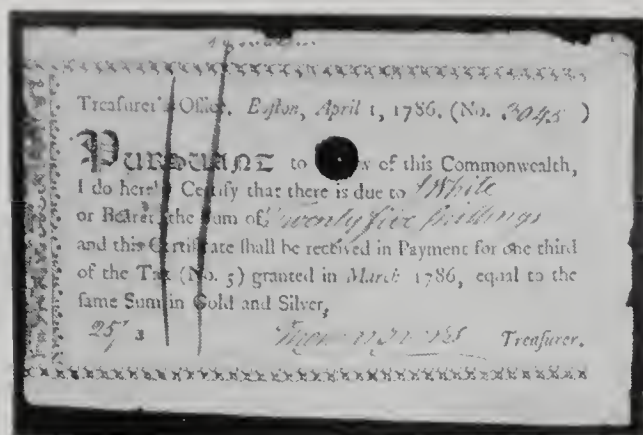 Treaſurer's Office. Boſton, April 1, 1786. (No. 3045 )
PURSUANT to of this Commonwealth,
I do hereby Certify that there is due to White
or Bearer, the Sum of Twenty five ſhillings
and this Certificate ſhall be received in Payment for one third
of the Tax (No. 5) granted in March 1786, equal to the
ſame Sum in Gold and Silver,
25/ Treaſurer.